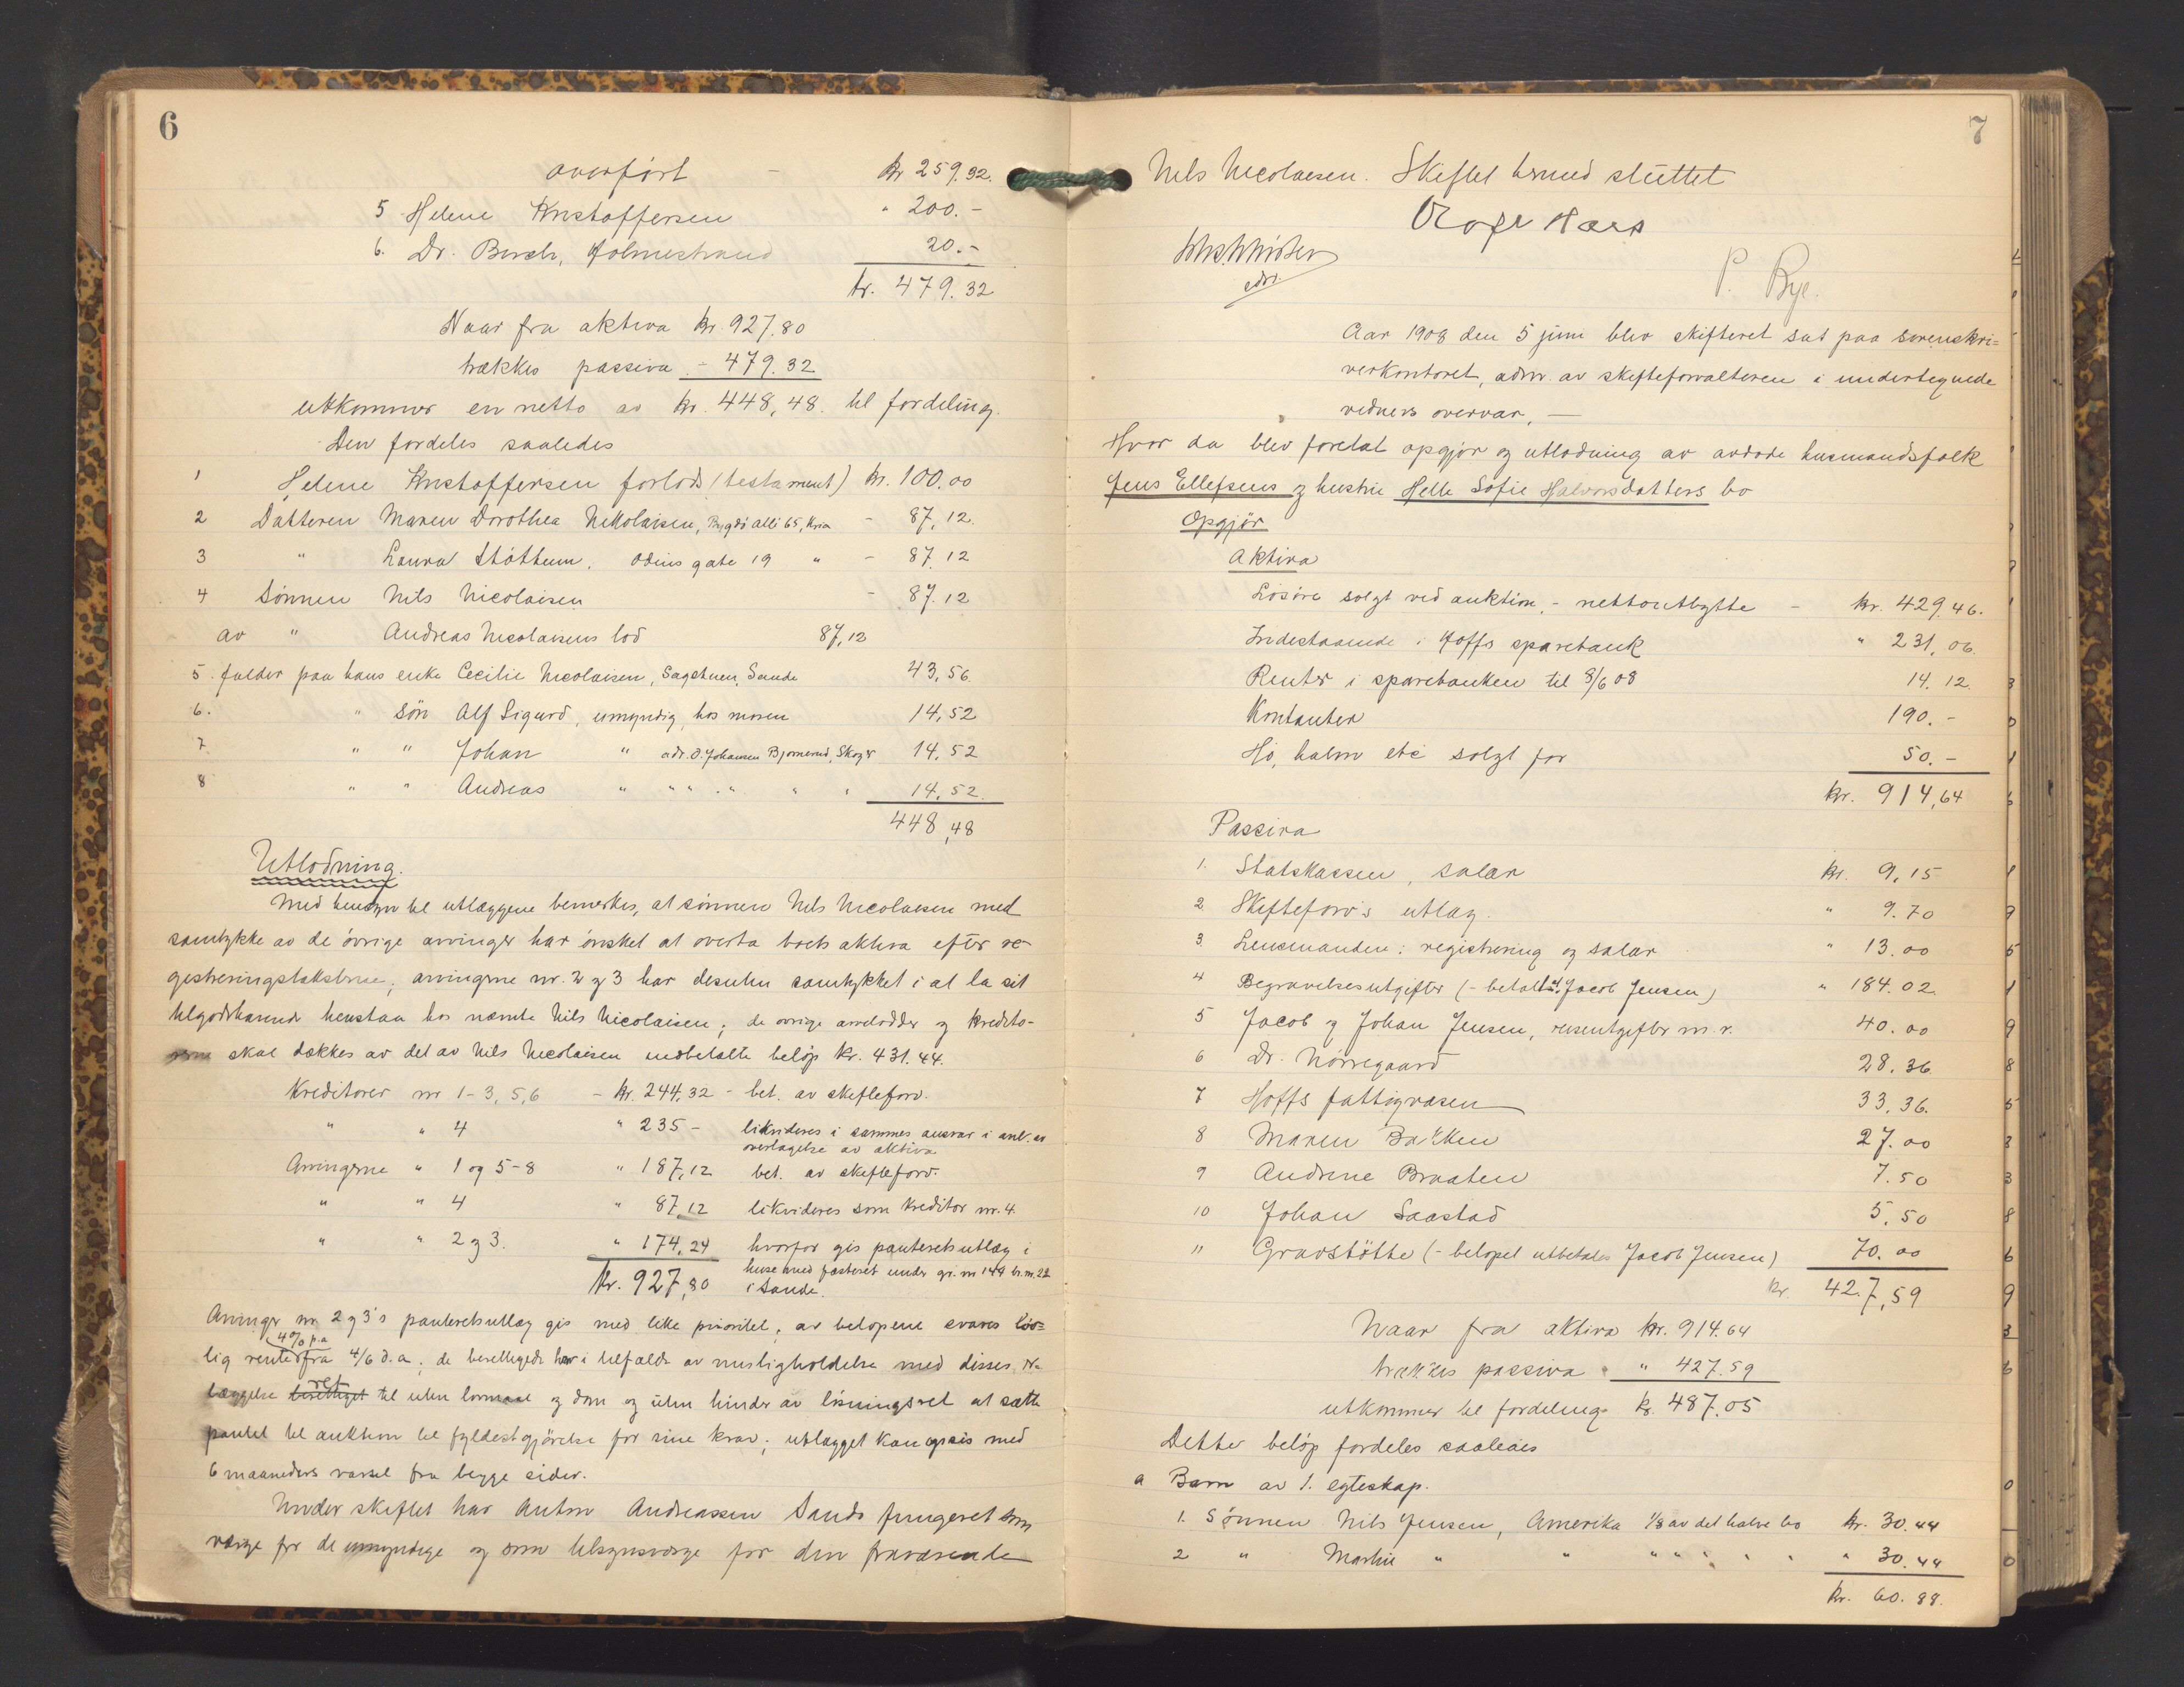 6
overført - kr 259.32.
5 Helene Kristoffersen " 200.-
6. Dr. Borch, Holmestrand 20.-
kr. 479.32
Naar fra aktiva kr. 927.80
trækkes passiva - 479.32
utkommer en netto av kr. 448,48. til fordeling.
Den fordeles saaledes
1 Helene Kristoffersen forlods (testament) kr. 100.00
2 Datteren Maren Dorothea Nikolaisen, Bygdö allé 65, Kria - 87,12.
3 " Laura Støttum, Odins gate 19 " - 87.12
4 Sönnen Nils Nicolaisen - 87.12
av " Andreas Nicolaisens lod 87,12
5. falder paa hans enke Cecilie Nicolaisen, Sagstuen, Sande 43,56.
6. " sön Alf Sigurd, umyndig, hos moren 14,52
7 " " Johan " adr. O. Johansen Bjørnerud, Skoger 14,52
8 " " Andreas " " " " " " 14,52.
448,48
Utlodning.
Med hensyn til utlæggene bemerkes, at sönnen Nils Nicolaisen med
samtykke av de övrige arvinger har önsket at overta boets aktiva efter re-
gistreringstaksterne; arvingerne nr. 2 og 3 har desuten samtykket i at la sit
tilgodehavende henstaa hos nævnte Nils Nicolaisen; de övrige arvelodder og kredito-
rerne skal dækkes av det av Nils Nicolaisen indbetalte belöp kr. 431.44.
Kreditorer nr 1-3, 5,6 - kr. 244,32 - bet. av skifteforv.
" " 4 " 235 - likvideres i sammes ansvar i anl. av
overtagelse av aktiva
Arvingerne " 1 og 5-8 " 187,12 bet. av skifteforv.
" " 4 " 87,12 likvideres som kreditor nr. 4.
" " 2 og 3. " 174,24 hvorfor gis panterets utlæg i
huse med festeret under gr. nr 144 br. nr. 22
kr. 927,80 i Sande.
Arvinger nr 2 og 3's panteretsutlæg gis med like prioritet, av belöpene svares lov=
4% p.a
lig renter fra 4/6 d.a.; de berettigede har i tilfælde av misligholdelse med disses er-
ret
læggelse berettiget til uten lovmaal og dom og uten hinder av lösningsret at sætte
pantet til auktion til fyldestgjörelse for sine krav; utlægget kan opsies med
6 maaneders varsel fra begge sider.
Under skiftet har Anton Andreassen Sando fungeret som
værge for de umyndige og som tilsynsværge for den fraværende
7
Nils Nicolaisen. Skiftet hermed sluttet
P. Rye.
Aar 1908 den 5 juni blev skifteret sat paa sorenskri=
verkontoret, adm. av skifteforvalteren i undertegnede
vidners overvær, —
Hvor da blev foretat opgjör og utlodning av avdöde husmandsfolk
Jens Ellefsens og hustru Helle Sofie Halvorsdatters bo
Opgjör
Aktiva
Lösöre solgt ved auktion, - nettoutbytte - kr. 429.46.
Indestaaende i Hoffs sparebank " 231,06.
Renter i sparebanken til 8/6 08 14.12.
Kontanter 190.-
Hö, halm etc solgt for 50.-
kr. 914,64
Passiva
1. Statskassen, salær kr. 9,15
2 Skifteforv's utlæg. " 9.70
3. Lensmanden: registrering og salær " 13.00
4 Begravelsesutgifter (- betalt av Jacob Jensen) " 184.02.
5 Jacob og Johan Jensen, reiseutgifter m.v. 40.00
6 Dr. Nörregaard 28.36
7 Hoffs fattigvæsen 33,36.
8 Maren Bakken 27.00
9 Andrine Braaten 7.50
10 Johan Saastad 5,50
11 Gravstötte (- belöpet utbetales Jacob Jensen) 70.00
kr. 427,59
Naar fra aktiva kr. 914.64
trækkes passiva " 427.59
utkommer til fordeling kr. 487.05
Dette belöp fordeles saaledes
a Barn av 1. egteskap.
1. Sönnen Nils Jensen, Amerika 1/8 av det halve bo kr. 30.44
2 " Martin " " " " " " " " 30.44
kr. 60.88.